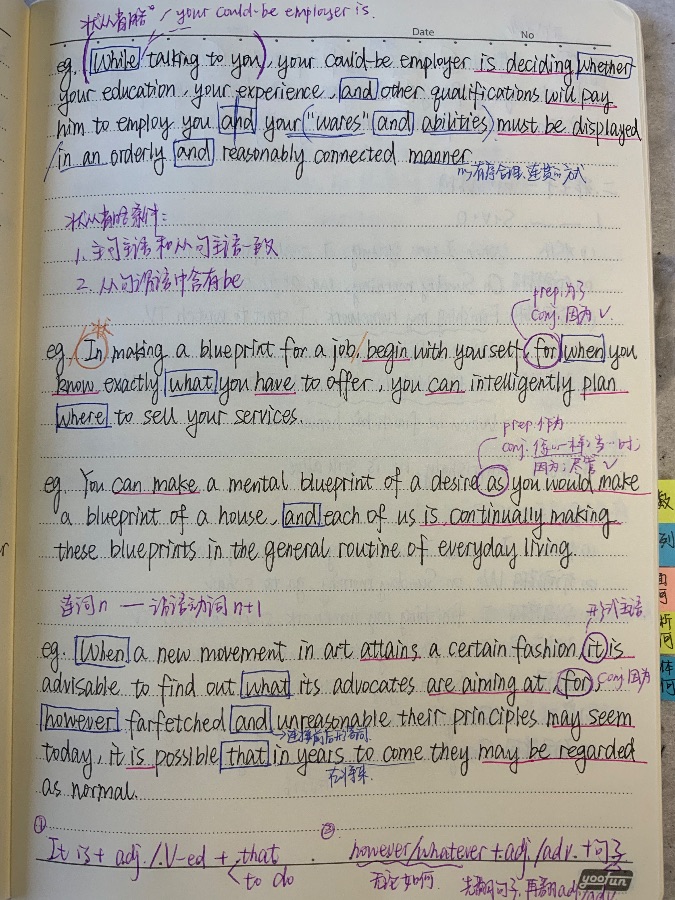 状从省略。/ your could-be employer is.
Date No
eg. (While talking to you), your could-be employer is deciding whether
your education, your experience, and other qualifications will pay
him to employ you and your ("wares" and abilities) must be displayed
in an orderly and reasonably connected manner
以有序合理、连贯的方式
状从省略条件:
1. 主句主语和从句主语一致
2. 从句谓语中含有be
prep.为了
conj. 因为 √.
eg. In making a blueprint for a job, begin with yourself, for when you
know exactly what you have to offer, you can intelligently plan
where to sell your services.
prep. 作为
conj. 像…一样; 当…时;
因为; 尽管 √
eg. You can make a mental blueprint of a desire as you would make
a blueprint of a house, and each of us is continually making
these blueprints in the general routine of everyday living.
连词n — 谓语动词 n+1
形式主语
eg. When a new movement in art attains a certain fashion, it is
advisable to find out what its advocates are aiming at, for,
conj 因为
however farfetched and unreasonable their principles may seem
today, it is possible that in years to come they may be regarded
在将来
as normal.
① It is + adj./V-ed + that
to do
② however/whatever + adj./adv. + 句子
无论如何. 先翻句子, 再翻adj/adv
yoofun
数
列